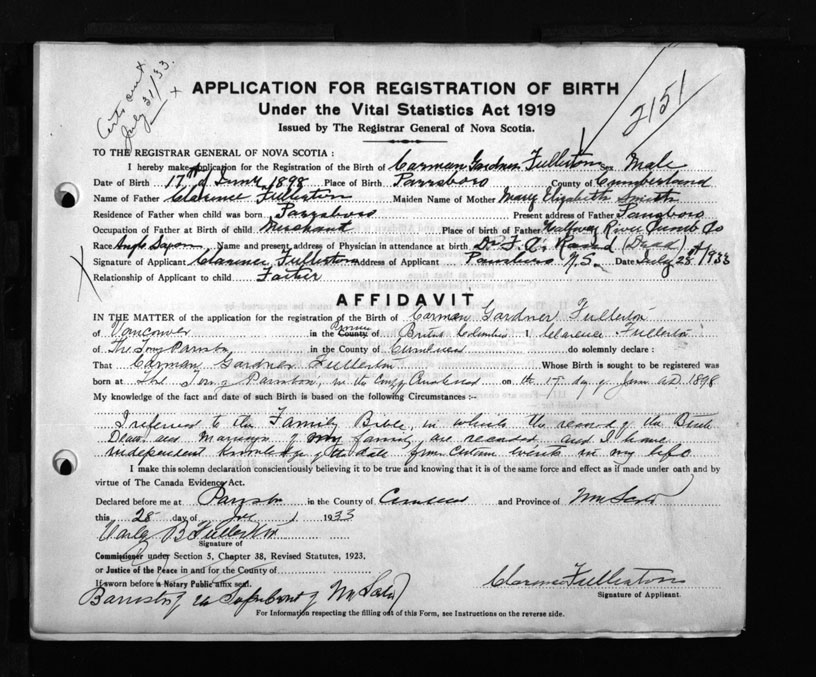 Certs out
July 31/33.
x
2151
APPLICATION FOR REGISTRATION OF BIRTH
Under the Vital Statistics Act 1919
Issued by The Registrar General of Nova Scotia.
TO THE REGISTRAR GENERAL OF NOVA SCOTIA :
I hereby make application for the Registration of the Birth of Carman Gardner Fullerton Male
Date of Birth 17th 1898 Place of Birth Parrsboro County of Cumberland
Name of Father Clarence Fullerton Maiden Name of Mother Mary Elizabeth Smith
Residence of Father when child was born Parrsboro Present address of Father Parrsboro
Occupation of Father at Birth of child Merchant Place of birth of Father Halfway River Cumb Co
Race Anglo Saxon Name and present address of Physician in attendance at birth Dr F. (Dead)
Signature of Applicant Clarence Fullerton Address of Applicant Parrsboro N.S. Date July 28th/1933
Relationship of Applicant to child Father
X
AFFIDAVIT
IN THE MATTER of the application for the registration of the Birth of Carman Gardner Fullerton
of Vancouver in the Province County of British Columbia I, Clarence Fullerton
of The Town Parrsboro in the County of Cumberland do solemnly declare :
That Carman Gardner Fullerton Whose Birth is sought to be registered was
born at The Town of Parrsboro, in the County of Cumberland on the 17 day of A.D. 1898
My knowledge of the fact and date of such Birth is based on the following Circumstances :-
I referred to the Family Bible, in which the record of the Birth
Deaths and Marriages of my family are recorded and I have
independent knowledge of the date from certain events in my life
I make this solemn declaration conscientiously believing it to be true and knowing that it is of the same force and effect as if made under oath and by
virtue of The Canada Evidence Act.
Declared before me at Parrsboro in the County of Cumberland and Province of Nova Scotia
this 28 day of July 1933
B Fullerton
Signature of
Commissioner under Section 5, Chapter 38, Revised Statutes, 1923.
or Justice of the Peace in and for the County of
If sworn before a Notary Public affix seal. Clarence Fullerton
Signature of Applicant.
Barrister of the Supreme Court of Nova Scotia
For Information respecting the filling out of this Form, see Instructions on the reverse side.